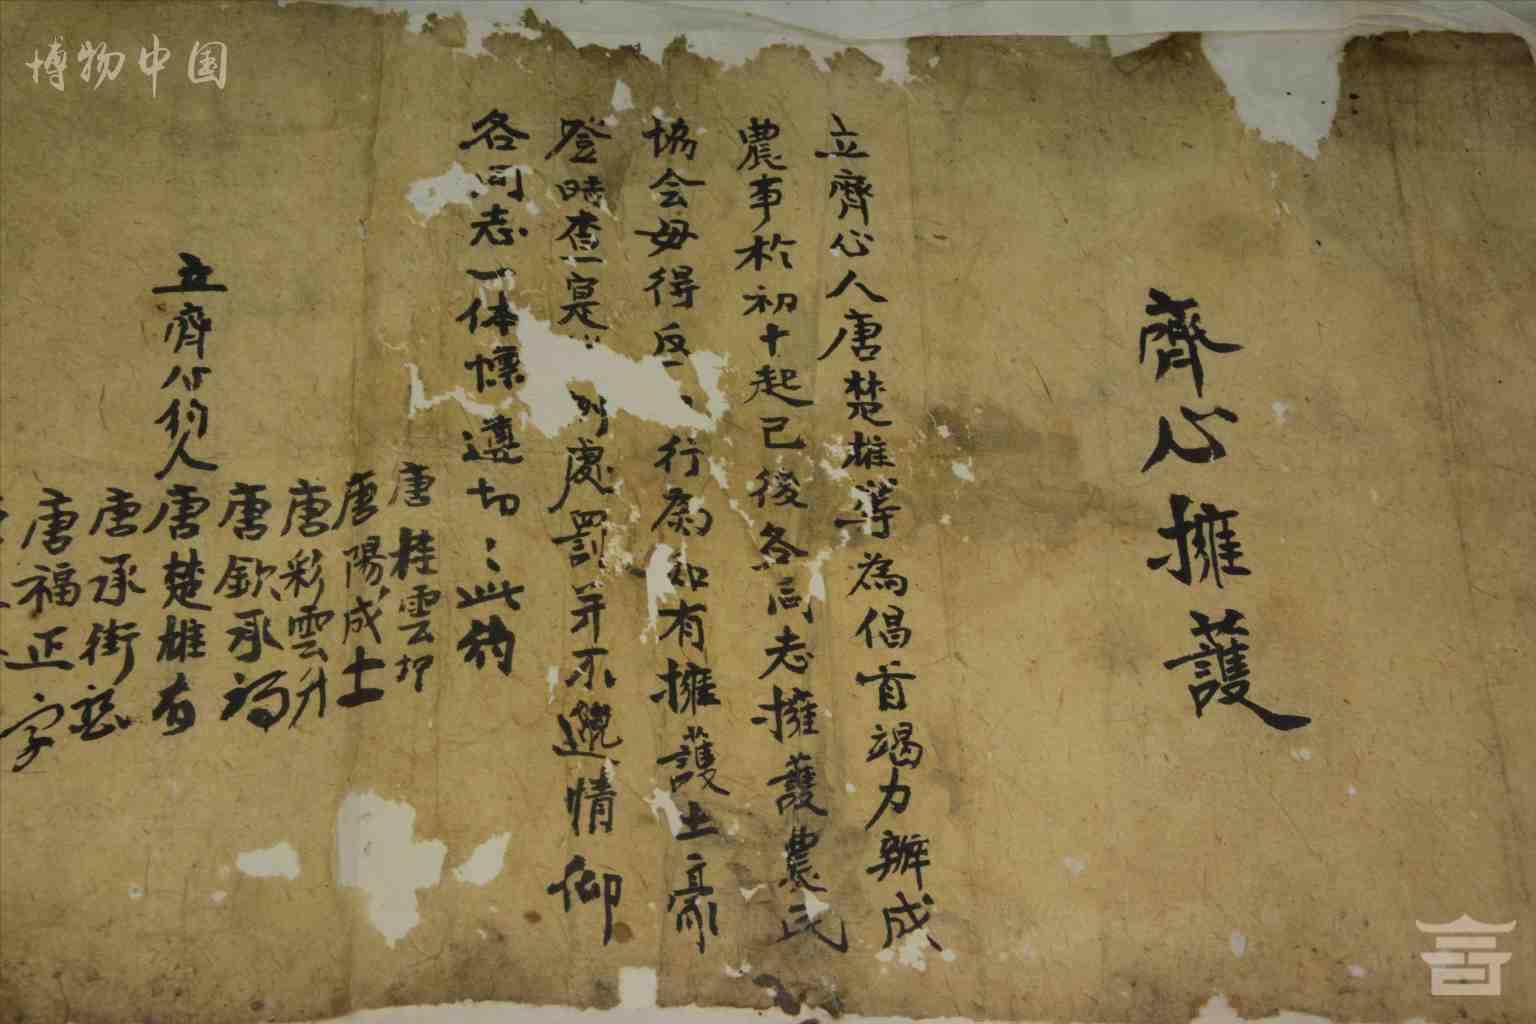 博物中国
齊心擁護
立齊心人唐楚雄等為倡首竭力辦成
農事於初十起已後各同志擁護農民
協会毋得反行為如有擁護土豪
登時查寔列處罰并不遷情仰
各同志一体懍遵切〻此約
唐桂雲押
唐陽成土
唐彩雲升
唐欽承
立齊心約人唐楚雄有
唐承街
唐福正字